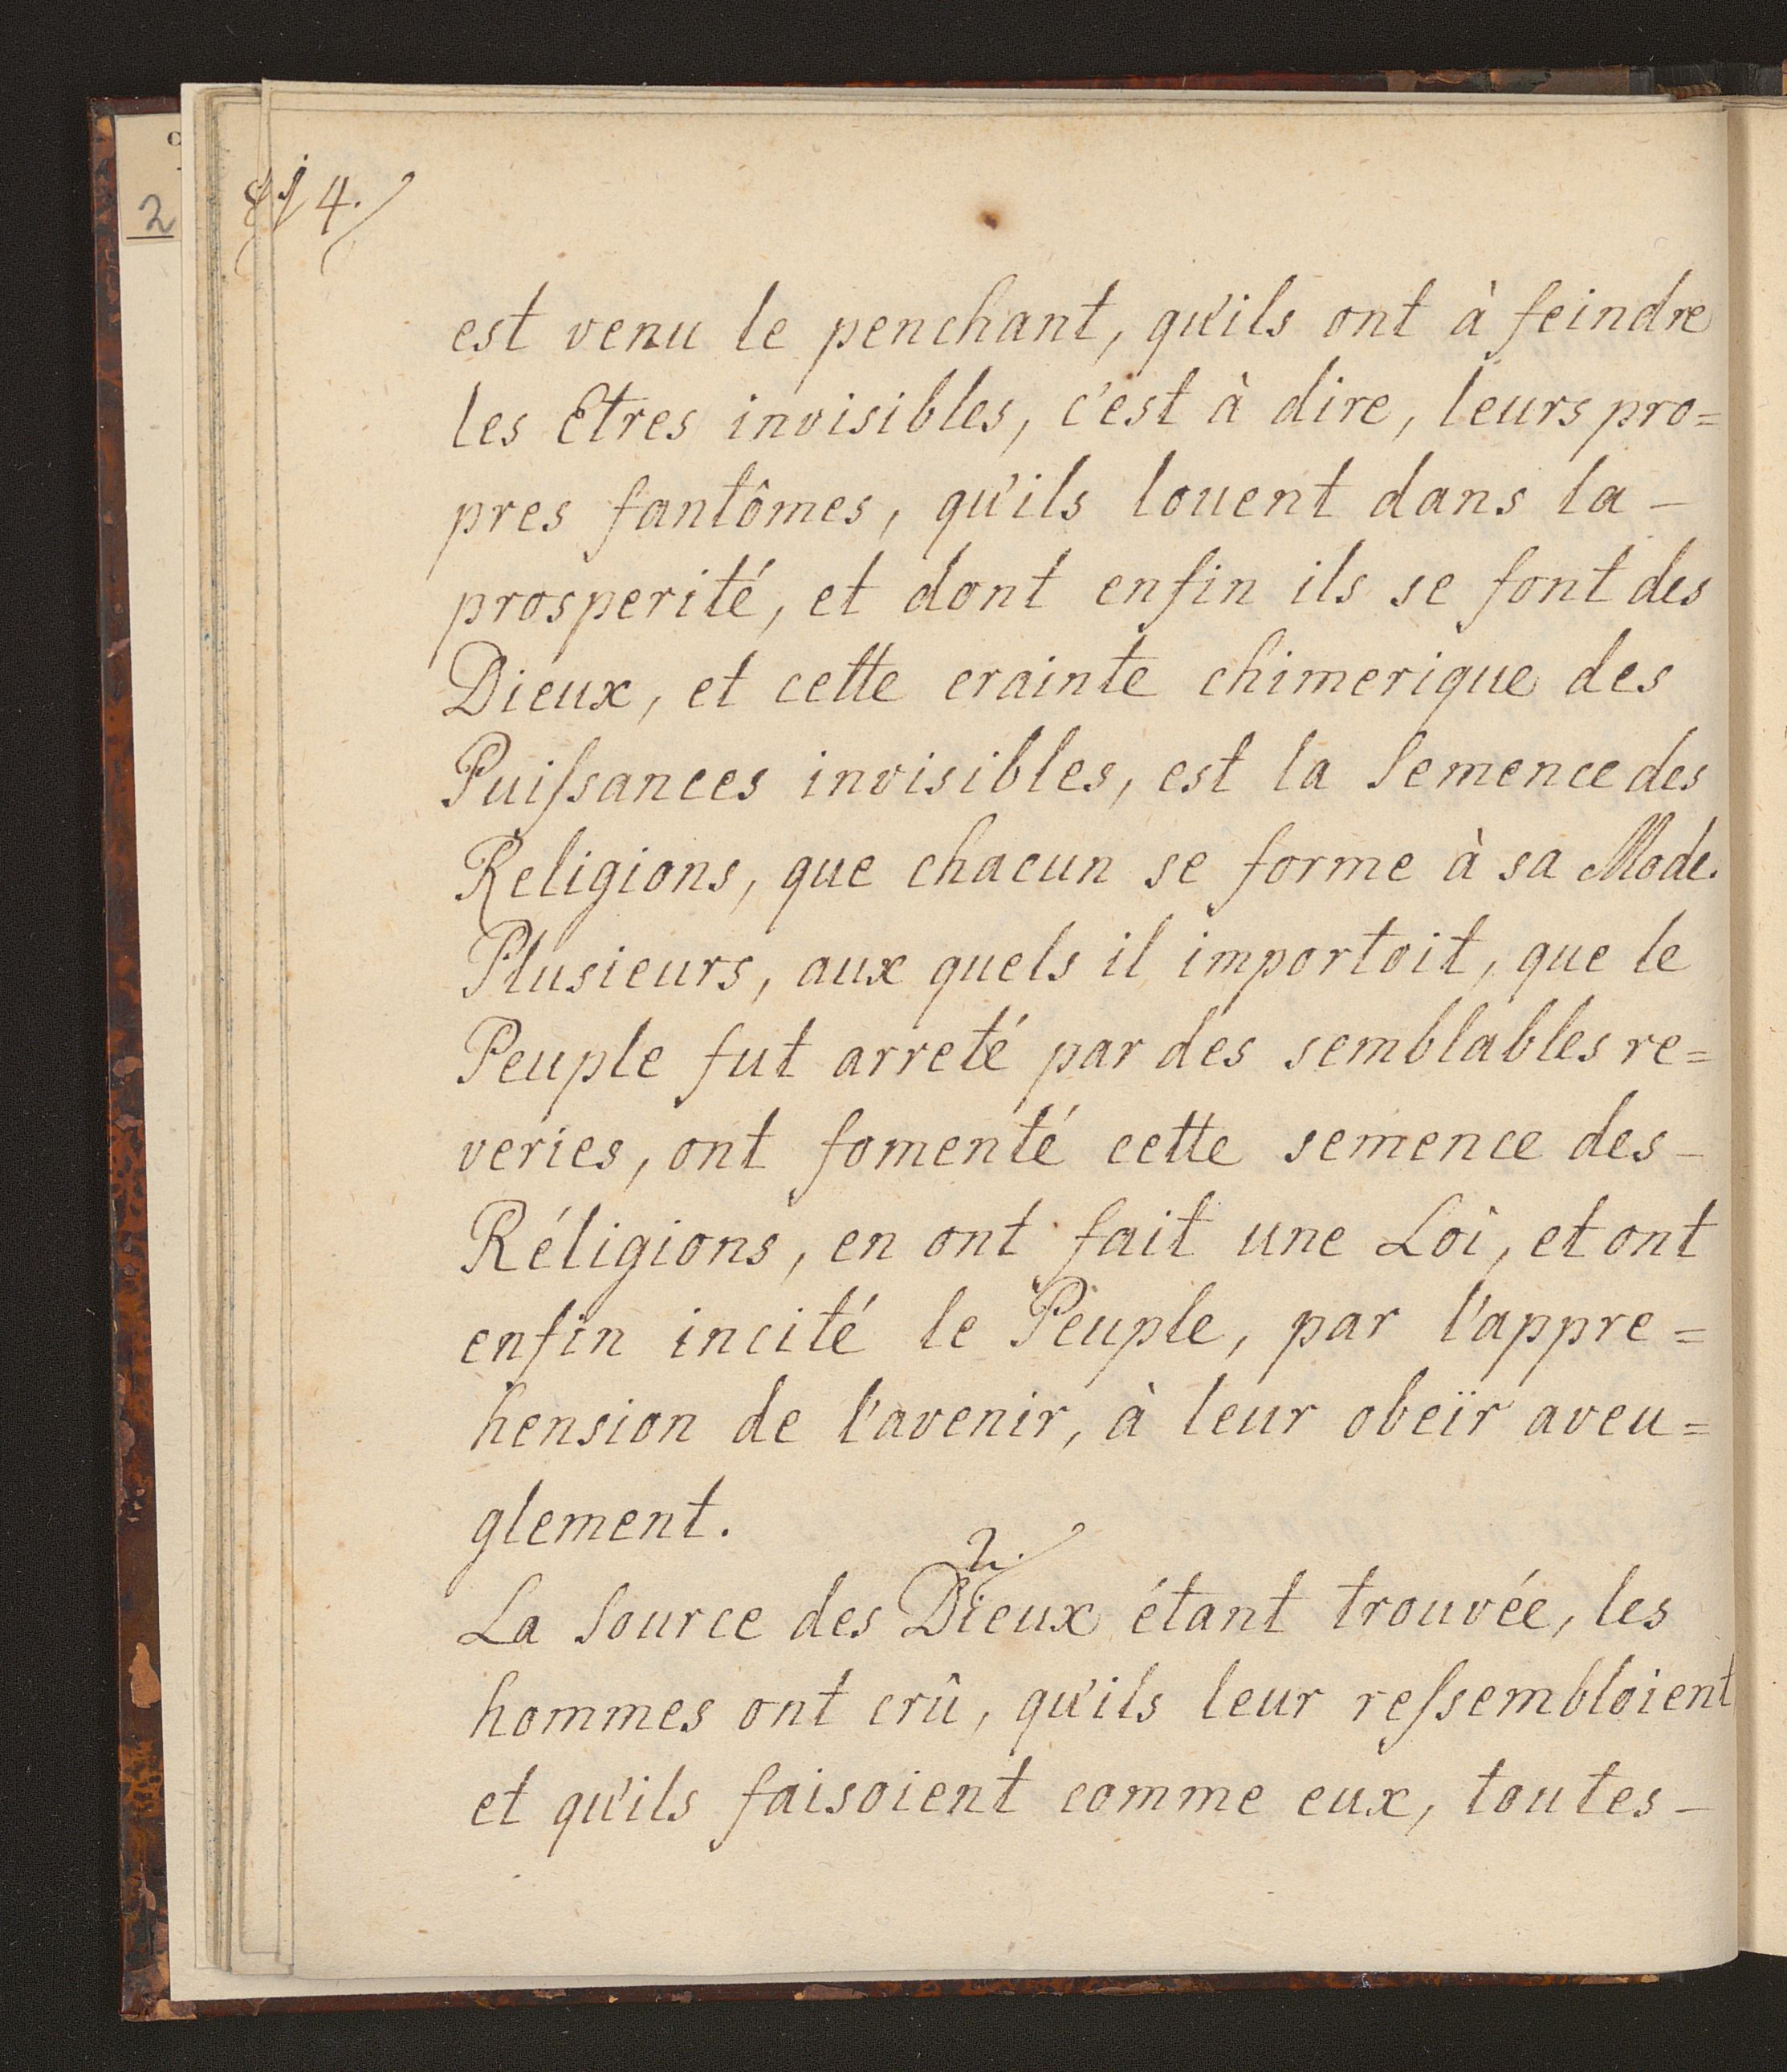 14.
2
est venu le penchant, qu'ils ont à feindre
les Etres invisibles, c'est à dire, leurs pro=
pres fantômes, qu'ils louent dans la –
prosperité, et dont enfin ils se font des
Dieux, et cette crainte chimerique des
Puiſsances invisibles, est la Semence des
Religions, que chacun se forme à sa Mode.
Plusieurs, aux quels il importoit, que le
Peuple fut arreté par des semblables re=
veries, ont fomenté cette semence des –
Réligions, en ont fait une Loi, et ont
enfin incité le Peuple, par l'appre=
hension de l'avenir, à leur obeïr aveu=
glement.
2.
La Source des Dieux étant trouvée, les
hommes ont crû, qu'ils leur reſsembloient
et qu'ils faisoient comme eux, toutes –